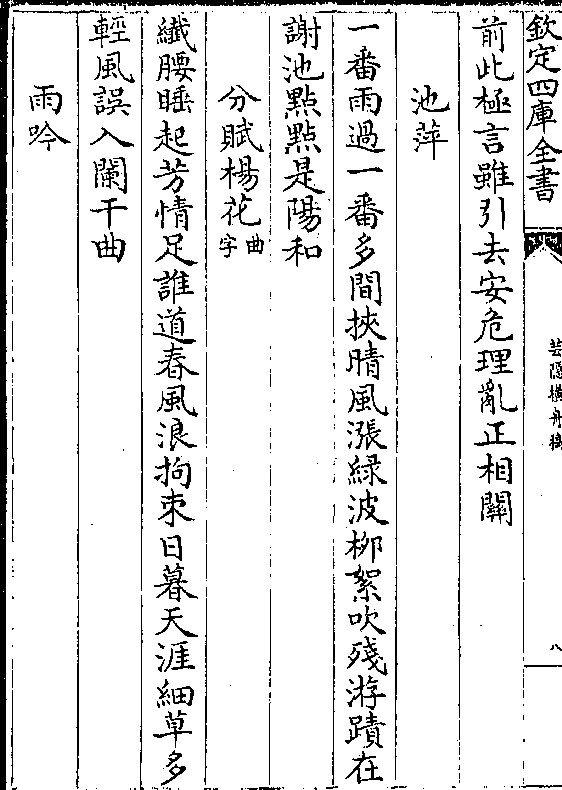 欽定四庫全書
芸隱橫舟稿
八
前此極言雖引去安危理亂正相關
池萍
一番雨過一番多間挾晴風漲綠波栁絮吹殘游蹟在
謝池點點是陽和
分賦楊花曲字
纎腰睡起芳情足誰道春風浪拘束日暮天涯細草多
輕風誤入闌干曲
雨吟